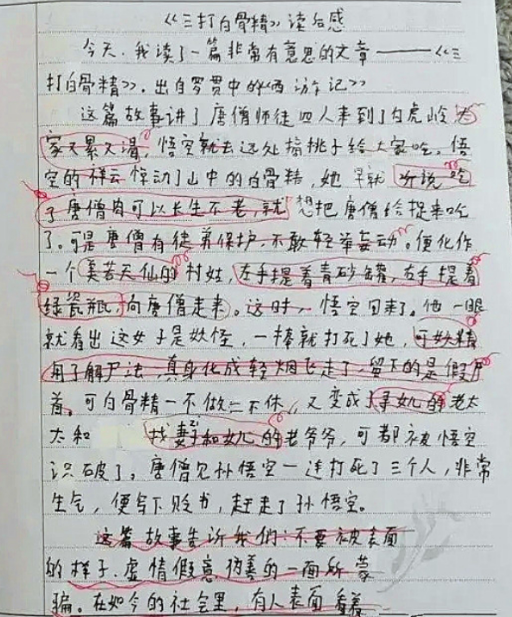 《三打白骨精》读后感
今天，我读了一篇非常有意思的文章——《三
打白骨精》，出自罗贯中的《西游记》
这篇故事讲了唐僧师徒四人来到了白虎岭，大
家又累又渴，悟空就去远处摘桃子给大家吃。悟
空的祥云惊动了山中的白骨精，她早就听说吃
了唐僧肉可以长生不老，就想把唐僧给捉来吃
了。可是唐僧有徒弟保护，不敢轻举妄动。便化作
一个美若天仙的村姑，左手提着青砂罐，右手提着
绿瓷瓶，向唐僧走来。这时，悟空回来了。他一眼
就看出这女子是妖怪，一棒就打死了她，可妖精
用了解尸法，真身化成轻烟飞走了，留下的是假尸
首。可白骨精一不做二不休，又变成了寻女儿的老太
太和 找妻子和女儿的老爷爷，可都被悟空
识破了。唐僧见孙悟空一连打死了三个人，非常
生气，便写下贬书，赶走了孙悟空。
这篇故事告诉我们：不要被表面
的样子，虚情假意伪善的一面所蒙
骗。在如今的社会里，有人表面看着